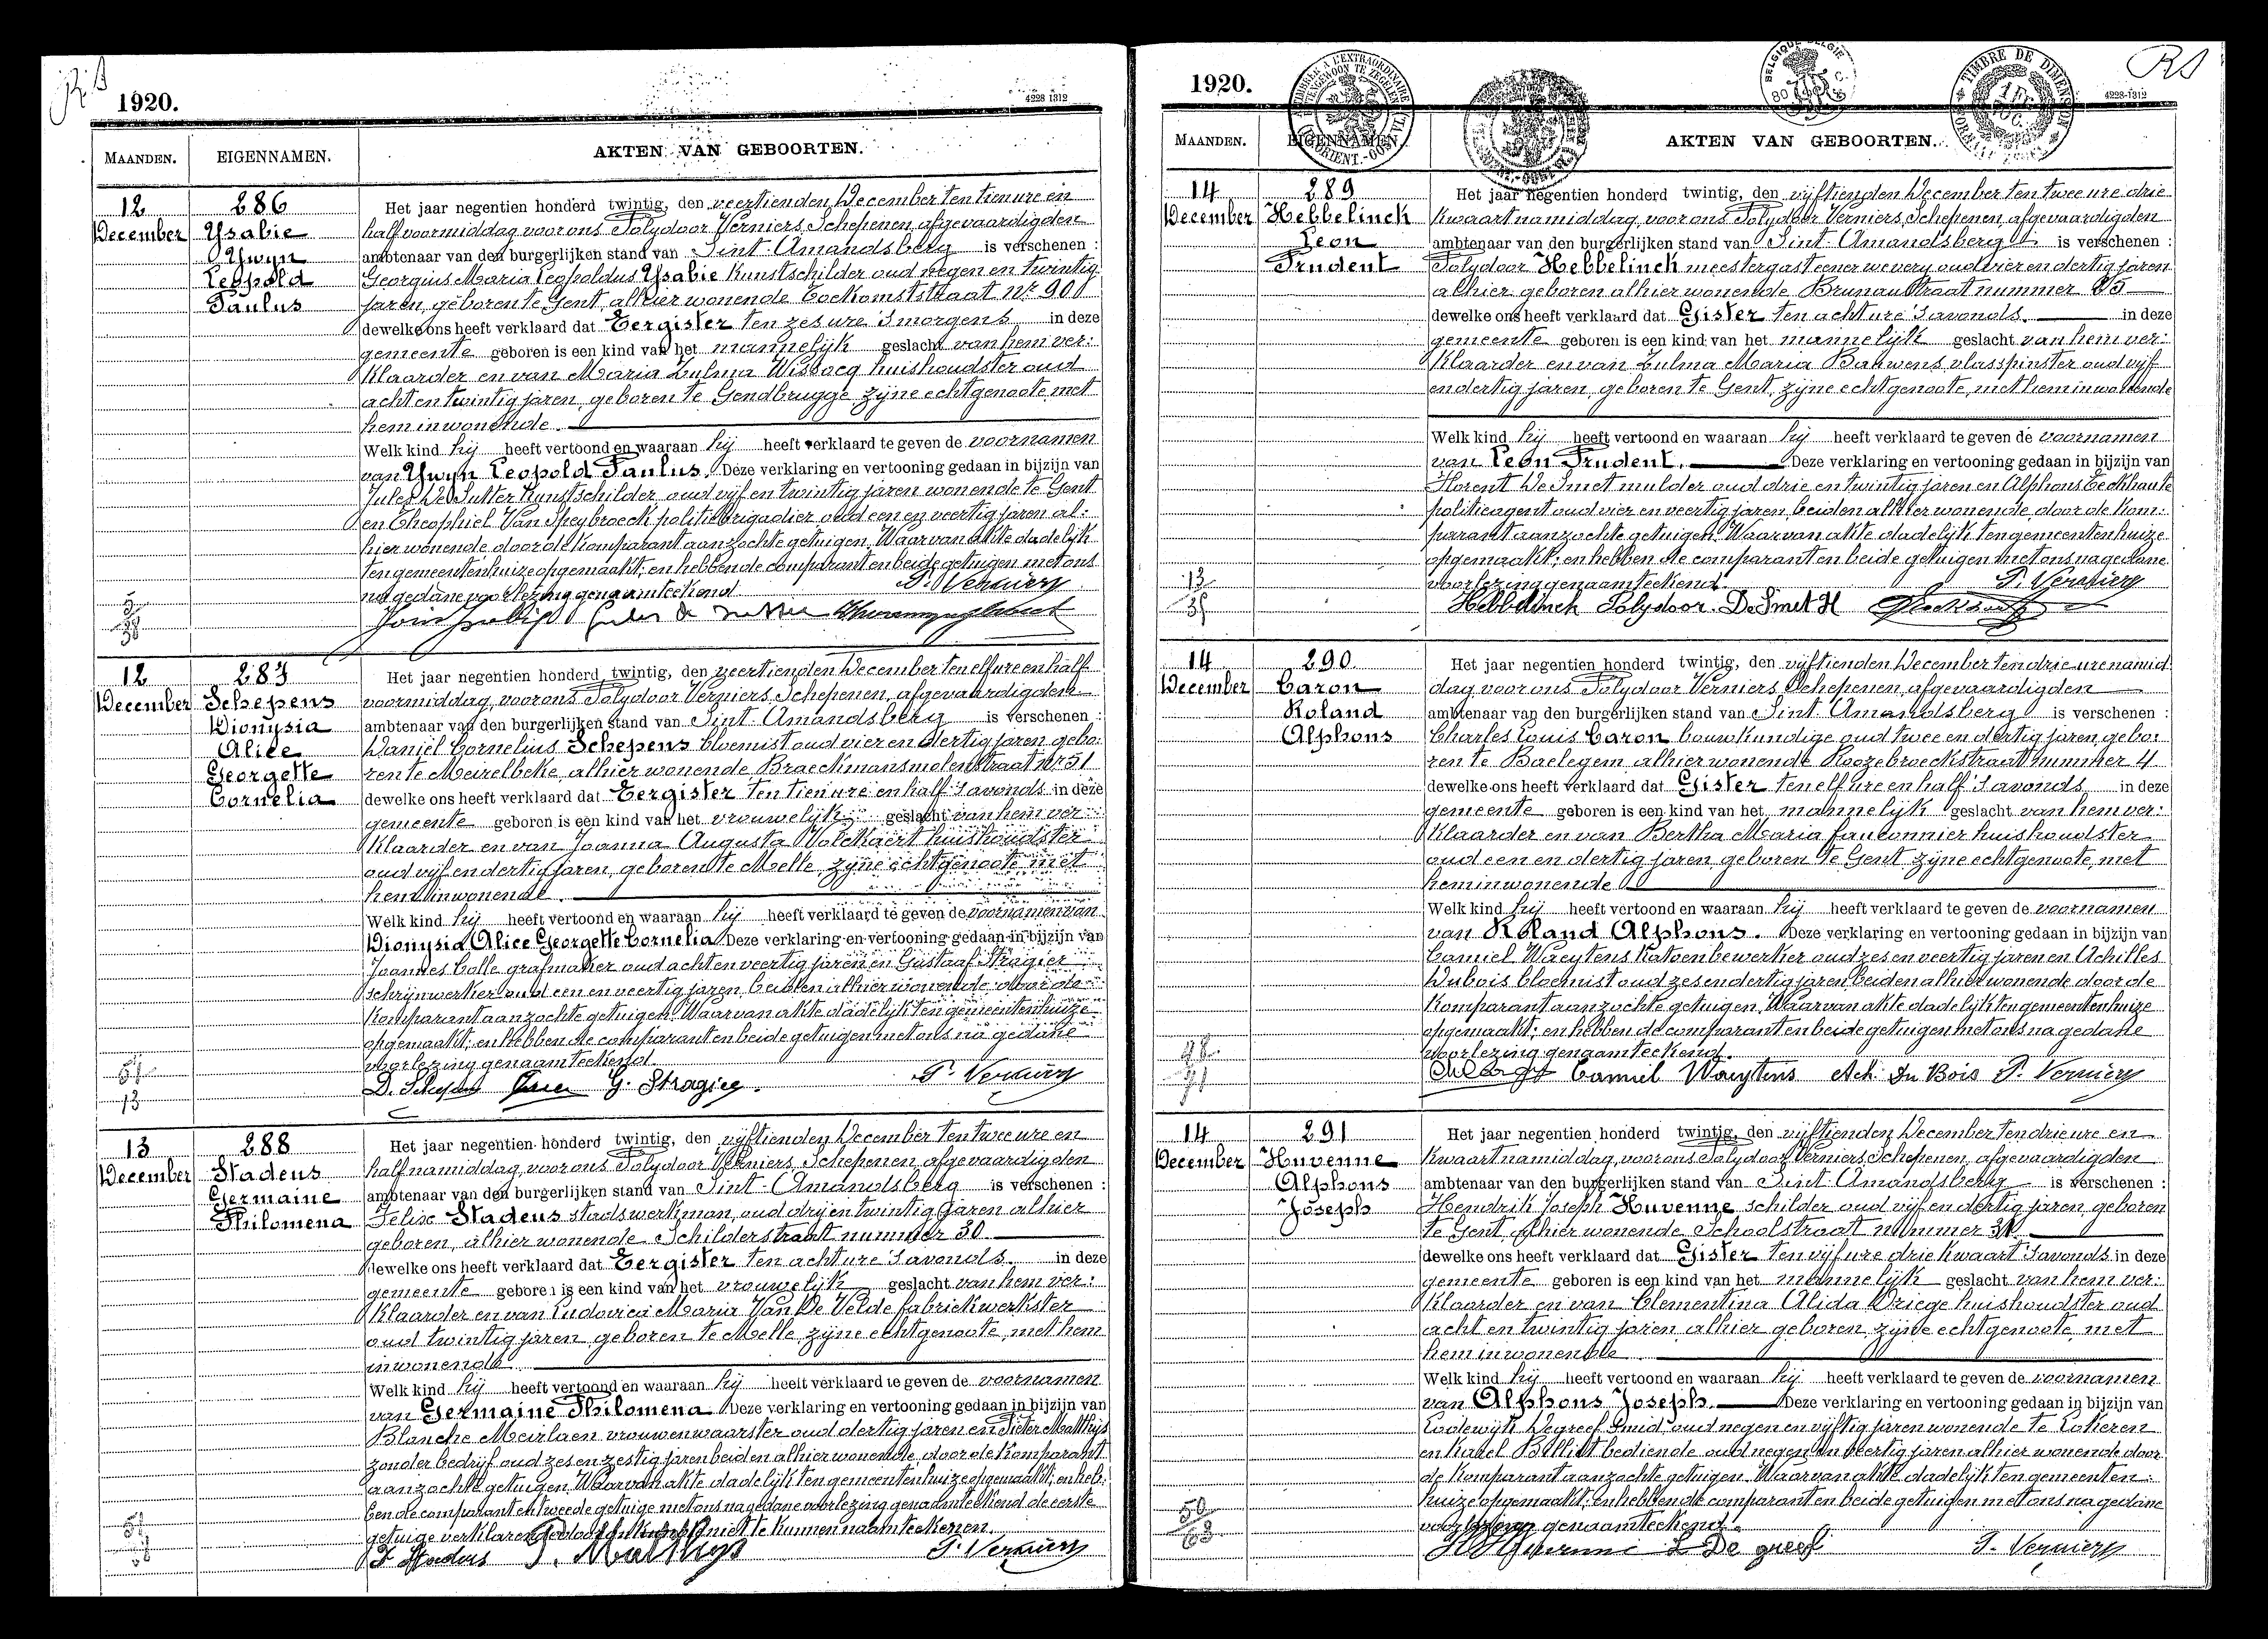 1920.
4228 1312
MAANDEN.
EIGENNAMEN.
AKTEN VAN GEBOORTEN.
12
December
286
Ysabie
Ywyn
Leopold
Paulus
Het jaar negentien honderd twintig, den veertienden December ten tien ure en
half voormiddag, voor ons Polydoor Verniers, Schepenen, afgevaardigden
ambtenaar van den burgerlijken stand van Sint-Amandsberg is verschenen :
Georgius Maria Leopoldus Ysabie kunstschilder oud negen en twintig
jaren, geboren te Gent, alhier wonende Toekomststraat Nr 90
dewelke ons heeft verklaard dat Eergister ten zes ure 's morgens in deze
gemeente geboren is een kind van het mannelijk geslacht van hem ver:
klaarder en van Maria Zulma Wissocq huishoudster oud
acht en twintig jaren, geboren te Gendbrugge zijne echtgenoote, met
hem inwonende.
Welk kind hij heeft vertoond en waaraan hij heeft verklaard te geven de voornamen
van Ywyn Leopold Paulus. Deze verklaring en vertooning gedaan in bijzijn van
Jules De Sutter kunstschilder oud vijf en twintig jaren wonende te Gent
en Theophiel Van Speybroeck politiebrigadier oud een en veertig jaren al:
hier wonende, door de komparant aanzochte getuigen. Waarvan akte dadelijk
ten gemeentenhuize opgemaakt; en hebben de comparant en beide getuigen met ons
na gedane voorlezing genaamteekend
P. Verniers
12
December
287
Schepens
Dionysia
Alice
Georgette
Cornelia
Het jaar negentien honderd twintig, den veertienden December ten elf ure en half
voormiddag, voor ons Polydoor Verniers, Schepenen, afgevaardigden
ambtenaar van den burgerlijken stand van Sint-Amandsberg is verschenen :
Daniël Cornelius Schepens bloemist oud vier en dertig jaren, gebo:
ren te Meirelbeke, alhier wonende Braeckmansmolenstraat Nr 51
dewelke ons heeft verklaard dat Eergister ten tien ure en half 's avonds in deze
gemeente geboren is een kind van het vrouwelijk geslacht van hem ver:
klaarder en van Joanna Augusta Volckaert huishoudster
oud vijf en dertig jaren, geboren te Melle, zijne echtgenoote met
hem inwonende.
Welk kind hij heeft vertoond en waaraan hij heeft verklaard te geven de voornamen van
Dionysia Alice Georgette Cornelia Deze verklaring en vertooning gedaan in bijzijn van
Joannes Colle grafmaker oud acht en veertig jaren en Gustaaf Stragier
schrijnwerker oud een en veertig jaren, beiden alhier wonende, door de
komparant aanzochte getuigen. Waarvan akte dadelijk ten gemeentenhuize
opgemaakt; en hebben de comparant en beide getuigen met ons na gedane
voorlezing genaamteekend
D. Schepens G. Stragier. P. Verniers
13
December
288
Stadeus
Germaine
Philomena
Het jaar negentien honderd twintig, den vijftienden December ten twee ure en
half namiddag, voor ons Polydoor Verniers, Schepenen, afgevaardigden
ambtenaar van den burgerlijken stand van Sint-Amandsberg is verschenen :
Felix Stadeus stadswerkman, oud drij en twintig jaren alhier
geboren, alhier wonende Schilderstraat nummer 30
dewelke ons heeft verklaard dat Eergister ten acht ure 's avonds. in deze
gemeente geboren is een kind van het vrouwelijk geslacht van hem ver:
klaarder en van Ludovica Maria Van De Velde fabriekwerkster
oud twintig jaren geboren te Melle, zijne echtgenoote, met hem
inwonende
Welk kind hij heeft vertoond en waaraan hij heeft verklaard te geven de voornamen
van Germaine Philomena Deze verklaring en vertooning gedaan in bijzijn van
Blanche Meirlaen vrouwenwaarster oud dertig jaren en Pieter Matthijs
zonder bedrijf oud zes en zestig jaren beiden alhier wonende, door de komparant
aanzochte getuigen Waarvan akte dadelijk ten gemeentenhuize opgemaakt; en heb:
ben de comparant en tweede getuige met ons na gedane voorlezing genaamteekend de eerste
getuige verklarende niet te kunnen naamteekenen.
F Stadeus P. Matthys P. Verniers
1920.
4228-1312
MAANDEN.
EIGENNAMEN.
AKTEN VAN GEBOORTEN.
14
December
289
Hebbelinck
Leon
Prudent
Het jaar negentien honderd twintig, den vijftienden December ten twee ure drie
kwaart namiddag, voor ons Polydoor Verniers, Schepenen, afgevaardigden
ambtenaar van den burgerlijken stand van Sint-Amandsberg is verschenen :
Polydoor Hebbelinck meestergast eener wevery oud vier en dertig jaren
alhier geboren alhier wonende Brunaustraat nummer 25
dewelke ons heeft verklaard dat Gister ten acht ure 's avonds. in deze
gemeente geboren is een kind van het mannelijk geslacht van hem ver:
klaarder en van Zulma Maria Bauwens vlasspinster oud vijf
en dertig jaren, geboren te Gent, zijne echtgenoote, met hem inwonende
Welk kind hij heeft vertoond en waaraan hij heeft verklaard te geven de voornamen
van Leon Prudent. Deze verklaring en vertooning gedaan in bijzijn van
Florent De Smet mulder oud drie en twintig jaren en Alphons Eeckhaute
politieagent oud vier en veertig jaren, beiden alhier wonende, door de kom:
parant aanzochte getuigen. Waarvan akte dadelijk ten gemeentenhuize
opgemaakt; en hebben de comparant en beide getuigen met ons na gedane
voorlezing genaamteekend.
P. Verniers
Hebbelinck Polydoor. De Smet H
14
December
290
Caron
Roland
Alphons
Het jaar negentien honderd twintig, den vijftienden December ten drie ure namid
dag voor ons Polydoor Verniers, Schepenen, afgevaardigden
ambtenaar van den burgerlijken stand van Sint-Amandsberg is verschenen :
Charles Louis Caron bouwkundige oud twee en dertig jaren, gebo:
ren te Baelegem alhier wonende Roozebroeckstraat nummer 4
dewelke ons heeft verklaard dat Gister ten elf ure en half 's avonds in deze
gemeente geboren is een kind van het mannelijk geslacht van hem ver:
klaarder en van Bertha Maria Fauconnier huishoudster
oud een en dertig jaren, geboren te Gent zijne echtgenoote, met
hem inwonende
Welk kind hij heeft vertoond en waaraan hij heeft verklaard te geven de voornamen
van Roland Alphons. Deze verklaring en vertooning gedaan in bijzijn van
Camiel Waeytens katoenbewerker oud zes en veertig jaren en Achilles
Dubois bloemist oud zes en dertig jaren, beiden alhier wonende door de
komparant aanzochte getuigen. Waarvan akte dadelijk ten gemeentenhuize
opgemaakt; en hebben de comparant en beide getuigen met ons na gedane
voorlezing genaamteekend.
Camiel Waeytens Ach. Du Bois P. Verniers
14
December
291
Huvenne
Alphons
Joseph
Het jaar negentien honderd twintig, den vijftienden December ten drie ure en
kwaart namiddag, voor ons Polydoor Verniers, Schepenen, afgevaardigden
ambtenaar van den burgerlijken stand van Sint-Amandsberg is verschenen :
Hendrik Joseph Huvenne schilder oud vijf en dertig jaren, geboren
te Gent alhier wonende Schoolstraat nummer
dewelke ons heeft verklaard dat Gister ten vijf ure drie kwaart 's avonds in deze
gemeente geboren is een kind van het mannelijk geslacht van hem ver:
klaarder en van Clementina Alida Driege huishoudster oud
acht en twintig jaren, alhier geboren, zijne echtgenoote, met
hem inwonende
Welk kind hij heeft vertoond en waaraan hij heeft verklaard te geven de voornamen
van Alphons Joseph. Deze verklaring en vertooning gedaan in bijzijn van
Lodewijk Degreef smid oud negen en vijftig jaren wonende te Lokeren
en Karel Billiet bediende oud negen en veertig jaren alhier wonende door
de komparant aanzochte getuigen. Waarvan akte dadelijk ten gemeenten:
huize opgemaakt; en hebben de comparant en beide getuigen met ons na gedane
voorlezing genaamteekend.
H Huvenne L De greef P. Verniers